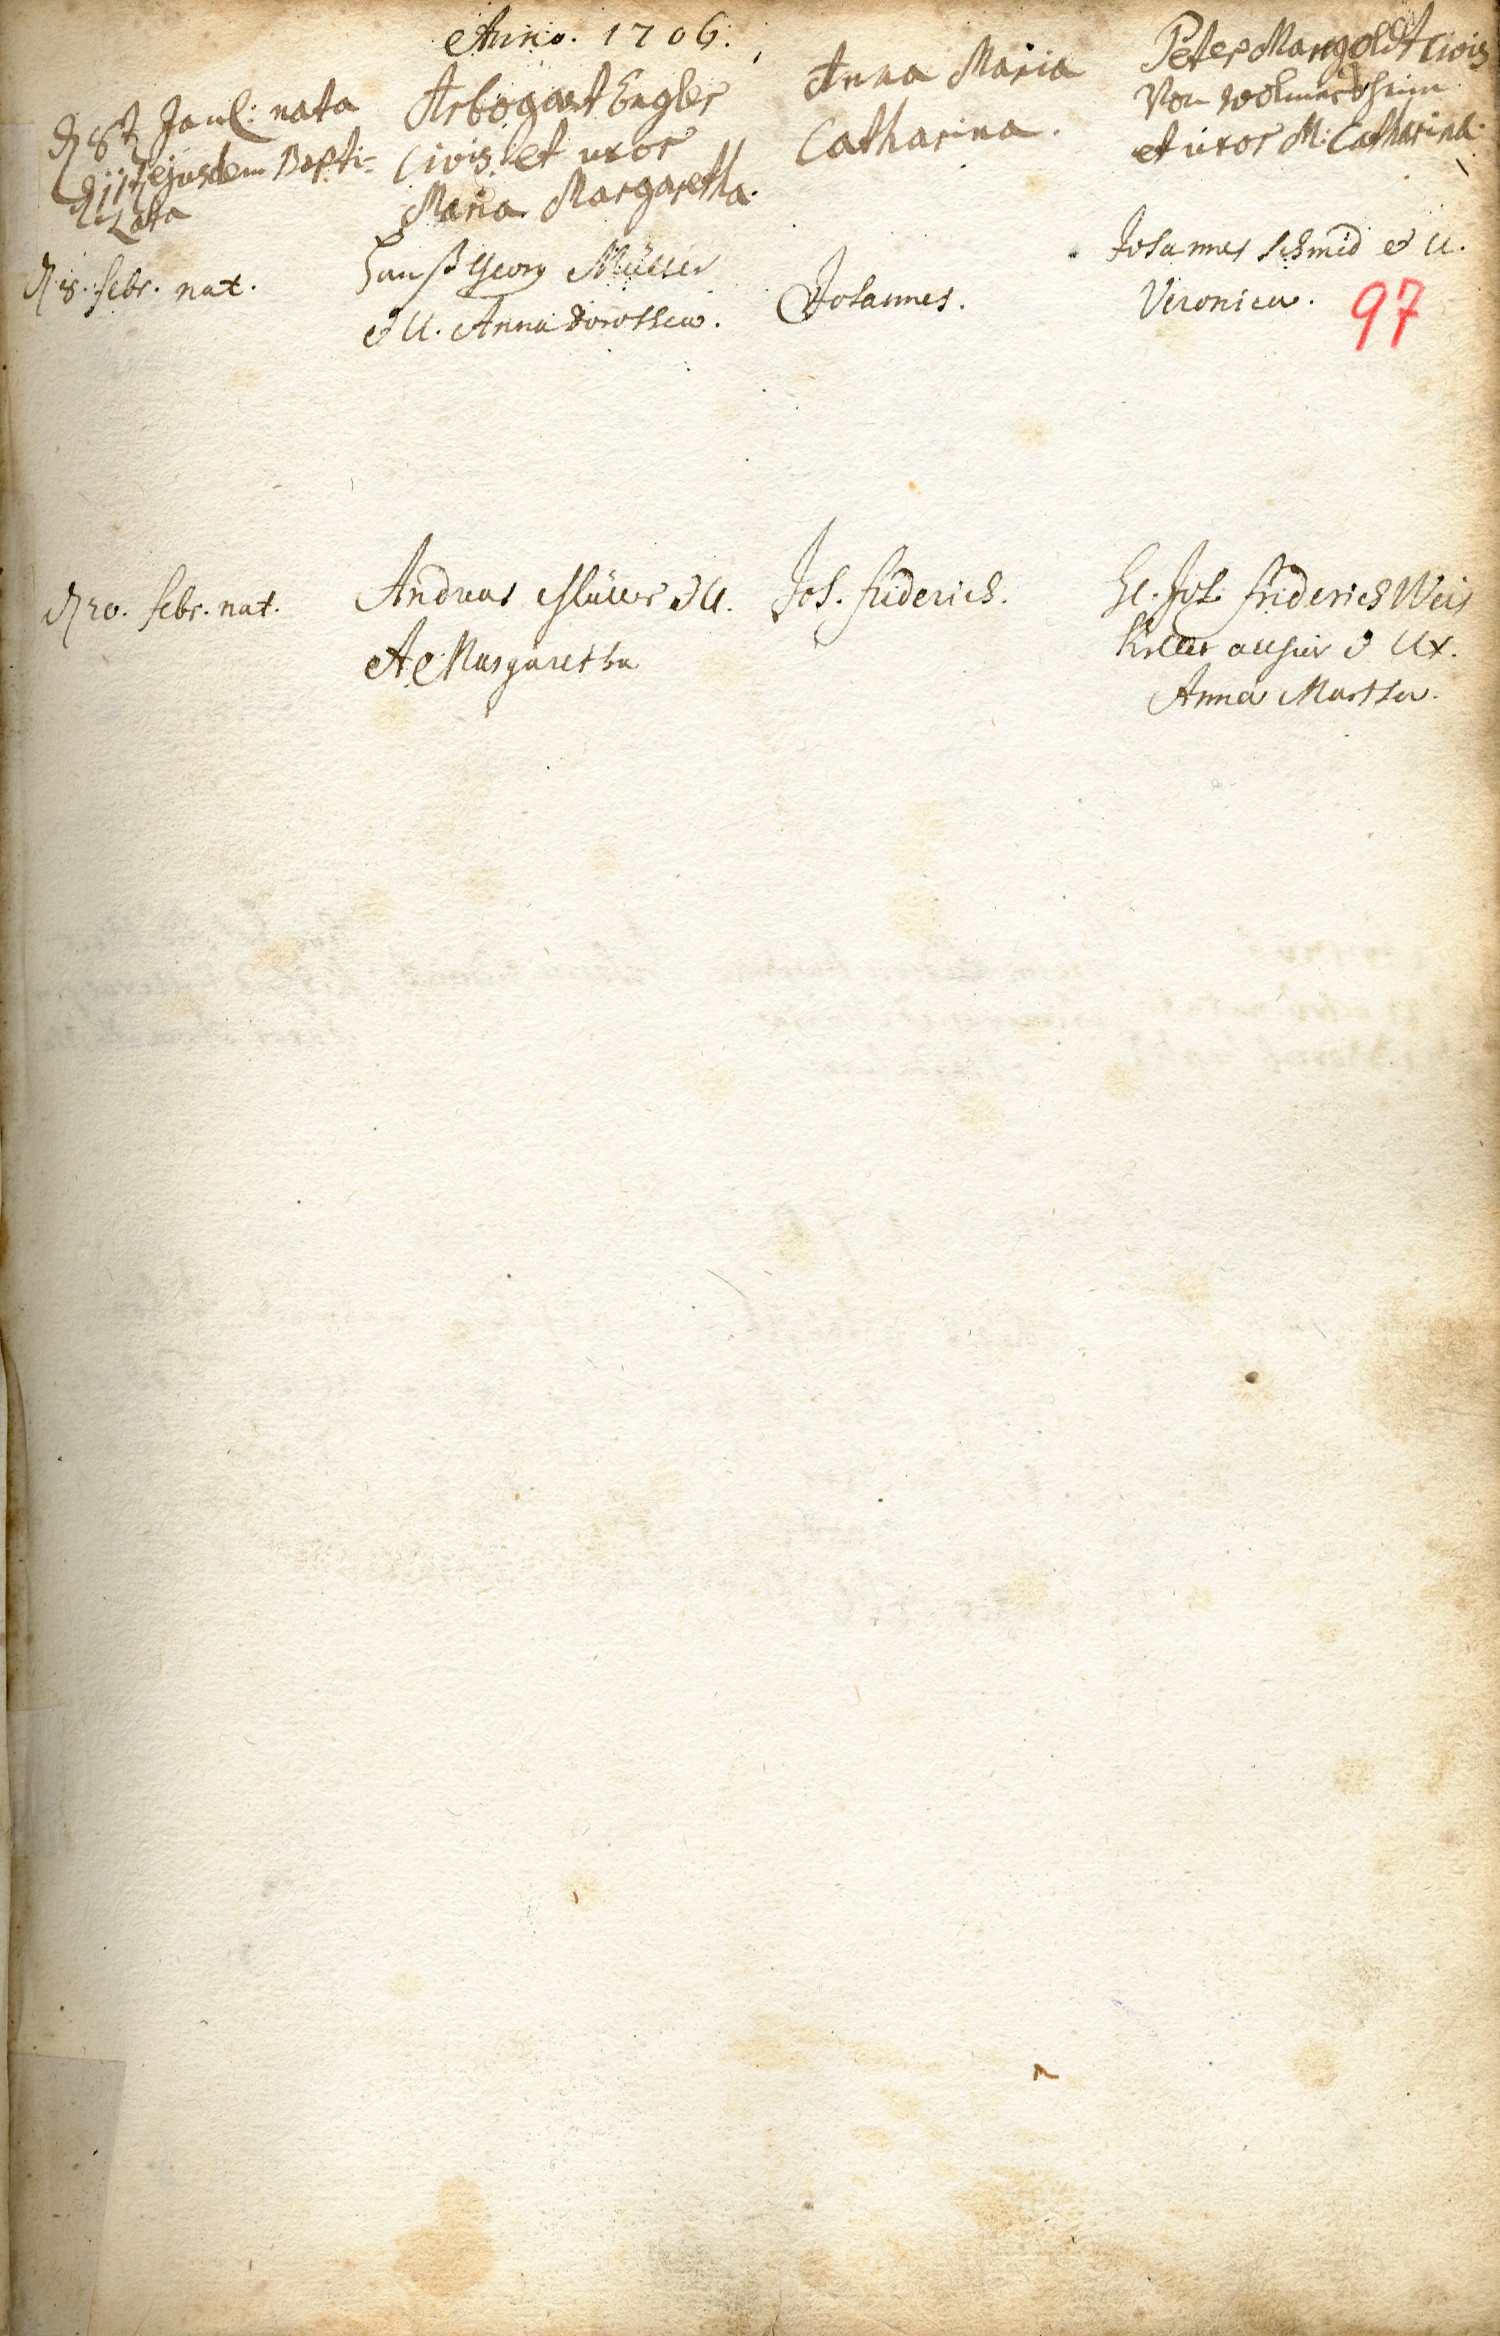 Anno. 1706.
d 8t Janl: nata
d 11t ejusdem Bapti-
zata
Arbogast Engler
Civis et uxor
Maria Margaretha.
Anna Maria
Catharina.
Peter Mangoldt Civis
Von
et uxor M: Catharina.
d 18. febr. nat.
Hanß Georg Müller
& U. Anna Dorothea.
Johannes.
Johannes Schmid & U.
Veronica.
97
d 20. febr. nat.
Andreas Müller & U.
A. Margaretha
Joh. friderich.
H. Joh. friderich Weis
Keller & Ux.
Anna Martha.